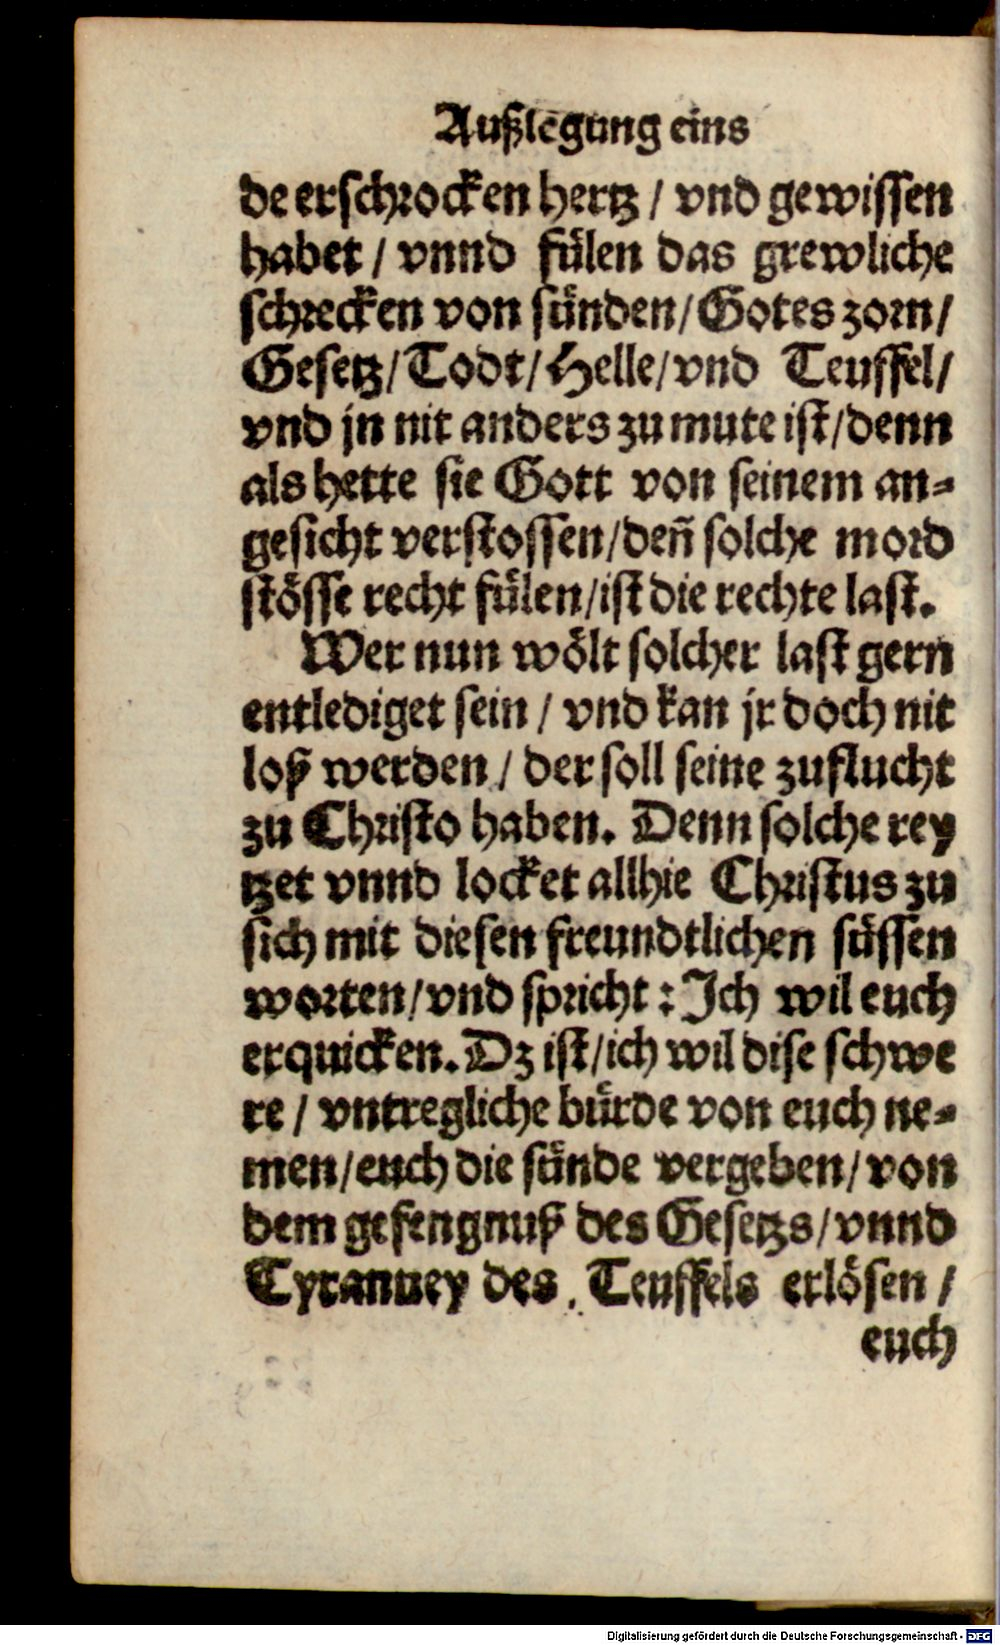 Außlegung eins
de erschrocken hertz / vnd gewissen
habet / vnnd fülen das grewliche
schrecken von sünden / Gotes zorn /
Gesetz / Todt / Helle / vnd Teuffel /
vnd jn nit anders zu mute ist / denn
als hette sie Gott von seinem an-
gesicht verstossen / deñ solche mord
stösse recht fülen / ist die rechte last.
Wer nun wölt solcher last gern
entlediget sein / vnd kan jr doch nit
loß werden / der soll seine zuflucht
zu Christo haben. Denn solche rey
tzet vnnd locket allhie Christus zu
sich mit diesen freundtlichen süssen
worten / vnd spricht : Ich wil euch
erquicken. Dz ist / ich wil dise schwe
re / vntregliche bürde von euch ne-
men / euch die sünde vergeben / von
dem gefengnuß des Gesetzs / vnnd
Tyranney des Teuffels erlösen /
euch
Digitalisierung gefördert durch die Deutsche Forschungsgemeinschaft - DFG